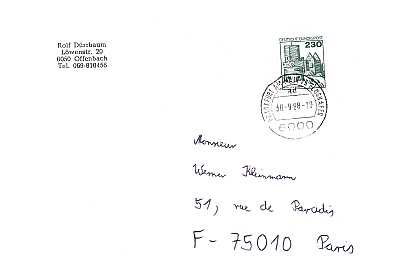 Rolf Dürrbaum
Löwenstr. 20
6050 Offenbach
Tel. 069-810456
DEUTSCHE BUNDESPOST
230
-9.88-19
6000
Monsieur
Werner Kleinmann
51, rue de Paradis
F - 75010 Paris